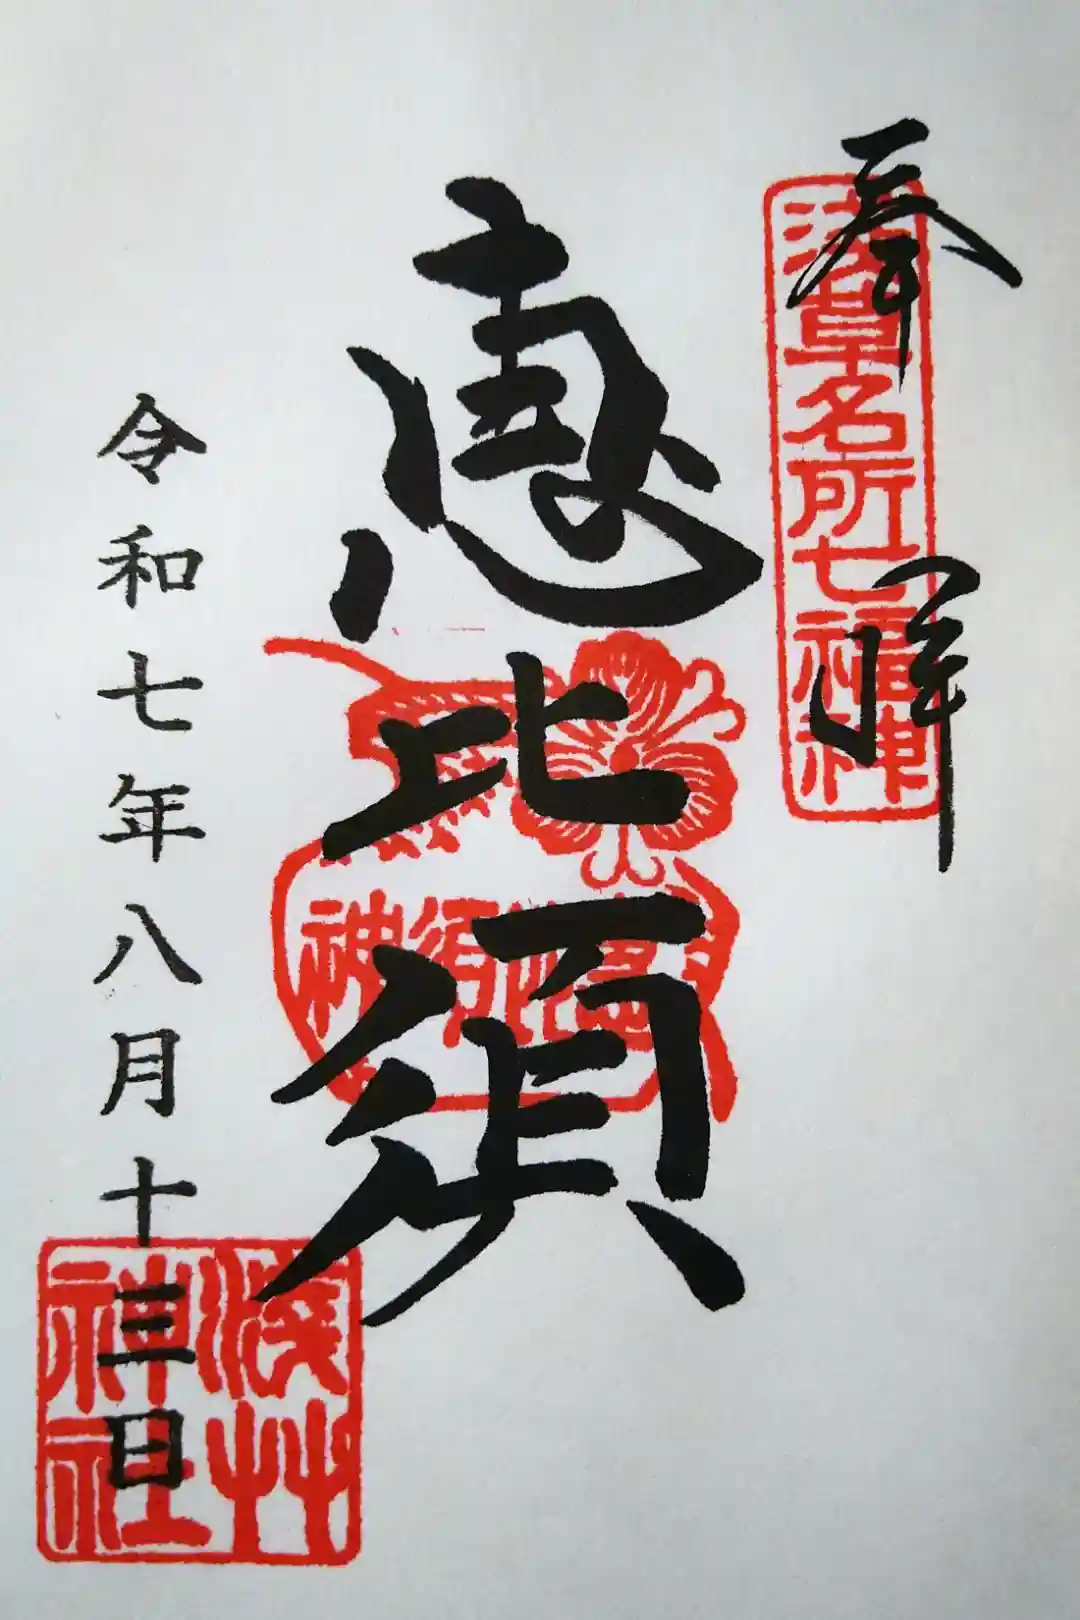 奉拝
浅草名所七福神
恵比須
恵比須神
令和七年八月十三日
浅草神社